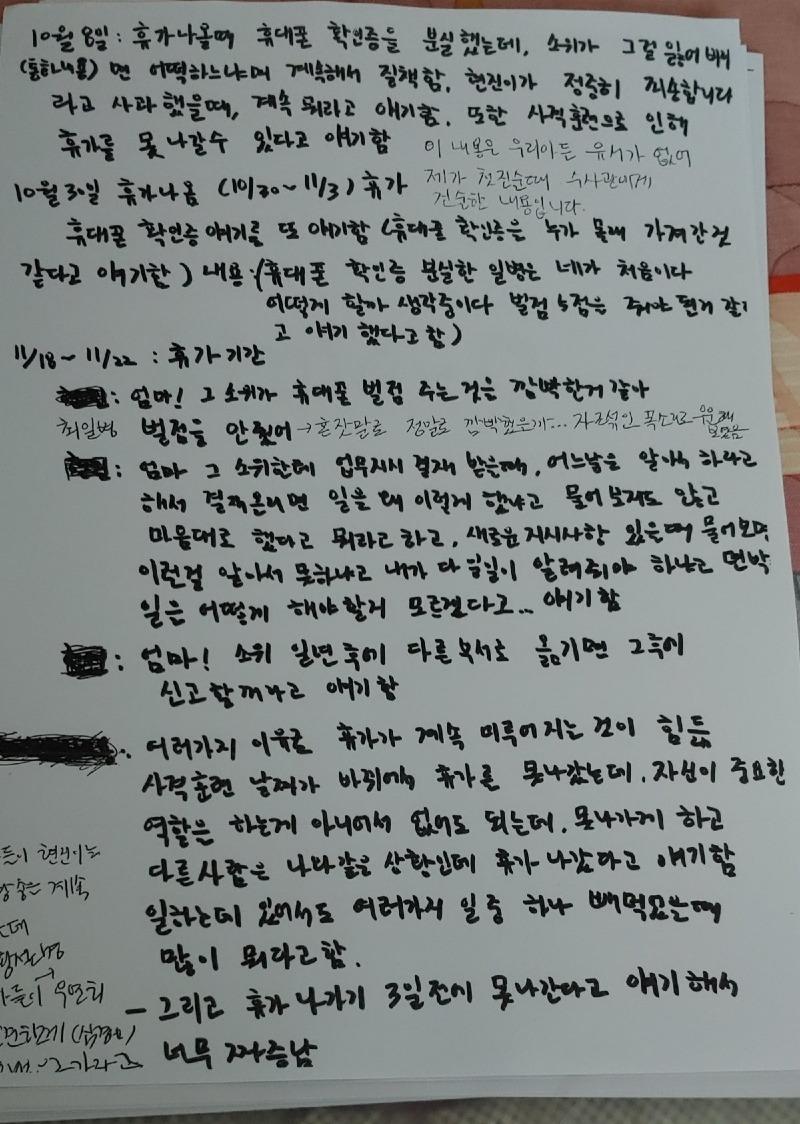 10월 8일 : 휴가나올때 휴대폰 확인증을 분실했는데, 소위가 그걸 잃어버리
(통화내용) 면 어떡하느냐며 계속해서 질책함. 현진이가 정중히 죄송합니다
라고 사과했을때, 계속 뭐라고 얘기함. 또한 사격훈련으로 인해
휴가를 못나갈수 있다고 얘기함
이 내용은 우리아들 유서가 없어
제가 첫진술때 수사관에게
진술한 내용입니다.
10월 30일 휴가나옴 (10/30~11/3) 휴가
휴대폰 확인증 얘기를 또 얘기함 (휴대폰 확인증은 누가 몰래 가져간것
같다고 얘기함) 내용:(휴대폰 확인증 분실한 일병은 네가 처음이다
어떻게 할까 생각중이다 벌점 5점은 줘야 될거 같다
고 얘기 했다고 함)
11/18~11/22 : 휴가기간
: 엄마! 그 소위가 휴대폰 벌점 주는것은 깜박한거 같아
최일병 벌점을 안줬어 →혼잣말로 정말로 깜박했을까... 자조섞인 목소리로
: 엄마 그 소위한테 업무지시 결재 받을때, 어느날은 알아서 하라고
해서 결재올리면 일을 왜 이렇게 했냐고 물어보지도 않고
마음대로 했다고 뭐라고 하고, 새로운 지시사항 있을때 물어보면
이런걸 알아서 못하냐고 내가 다 일일이 알려줘야 하냐고 면박
일을 어떻게 해야할지 모르겠다고... 얘기함
: 엄마! 소위 일년후에 다른부서로 옮기면 그후에
신고할꺼라고 얘기함
여러가지 이유로 휴가가 계속 미루어지는 것이 힘듦
사격훈련 날짜가 바뀌어서 휴가를 못나갔는데, 자신이 중요한
역할을 하는게 아니어서 없어도 되는데, 못나가게 하고
다른사람은 나와같은 상황인데 휴가 나갔다고 얘기함
일하는데 있어서도 여러가지 일중 하나 빼먹었을때
많이 뭐라고함.
- 그리고 휴가 나가기 3일전에 못나간다고 얘기해서
너무 짜증남
현진이는
계속